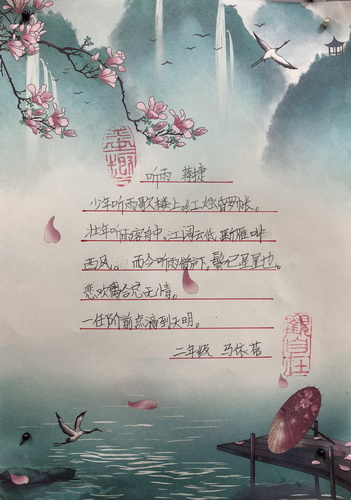 听雨 蒋捷
少年听雨歌楼上。红烛昏罗帐。
壮年听雨客舟中。江阔云低、断雁叫
西风。 而今听雨僧庐下。鬓已星星也。
悲欢离合总无情。
一任阶前点滴到天明。
二年级 马依蓓
觀自在